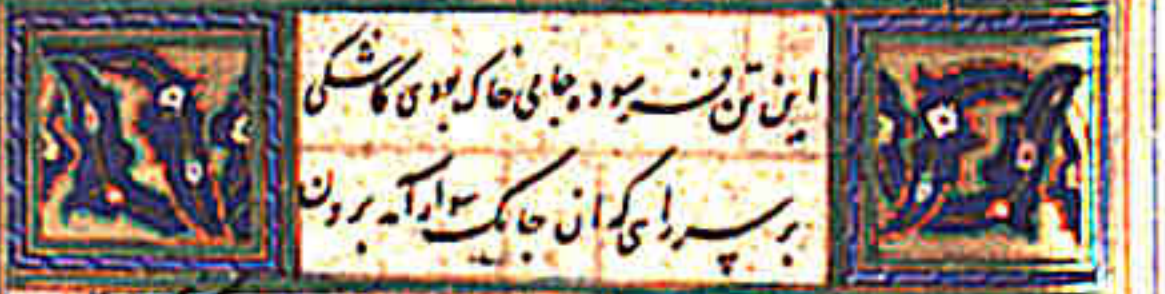 این تن فرسوده جای خاک بودی کاشکی
بر سر راهی کزان چابک سوار آمد برون